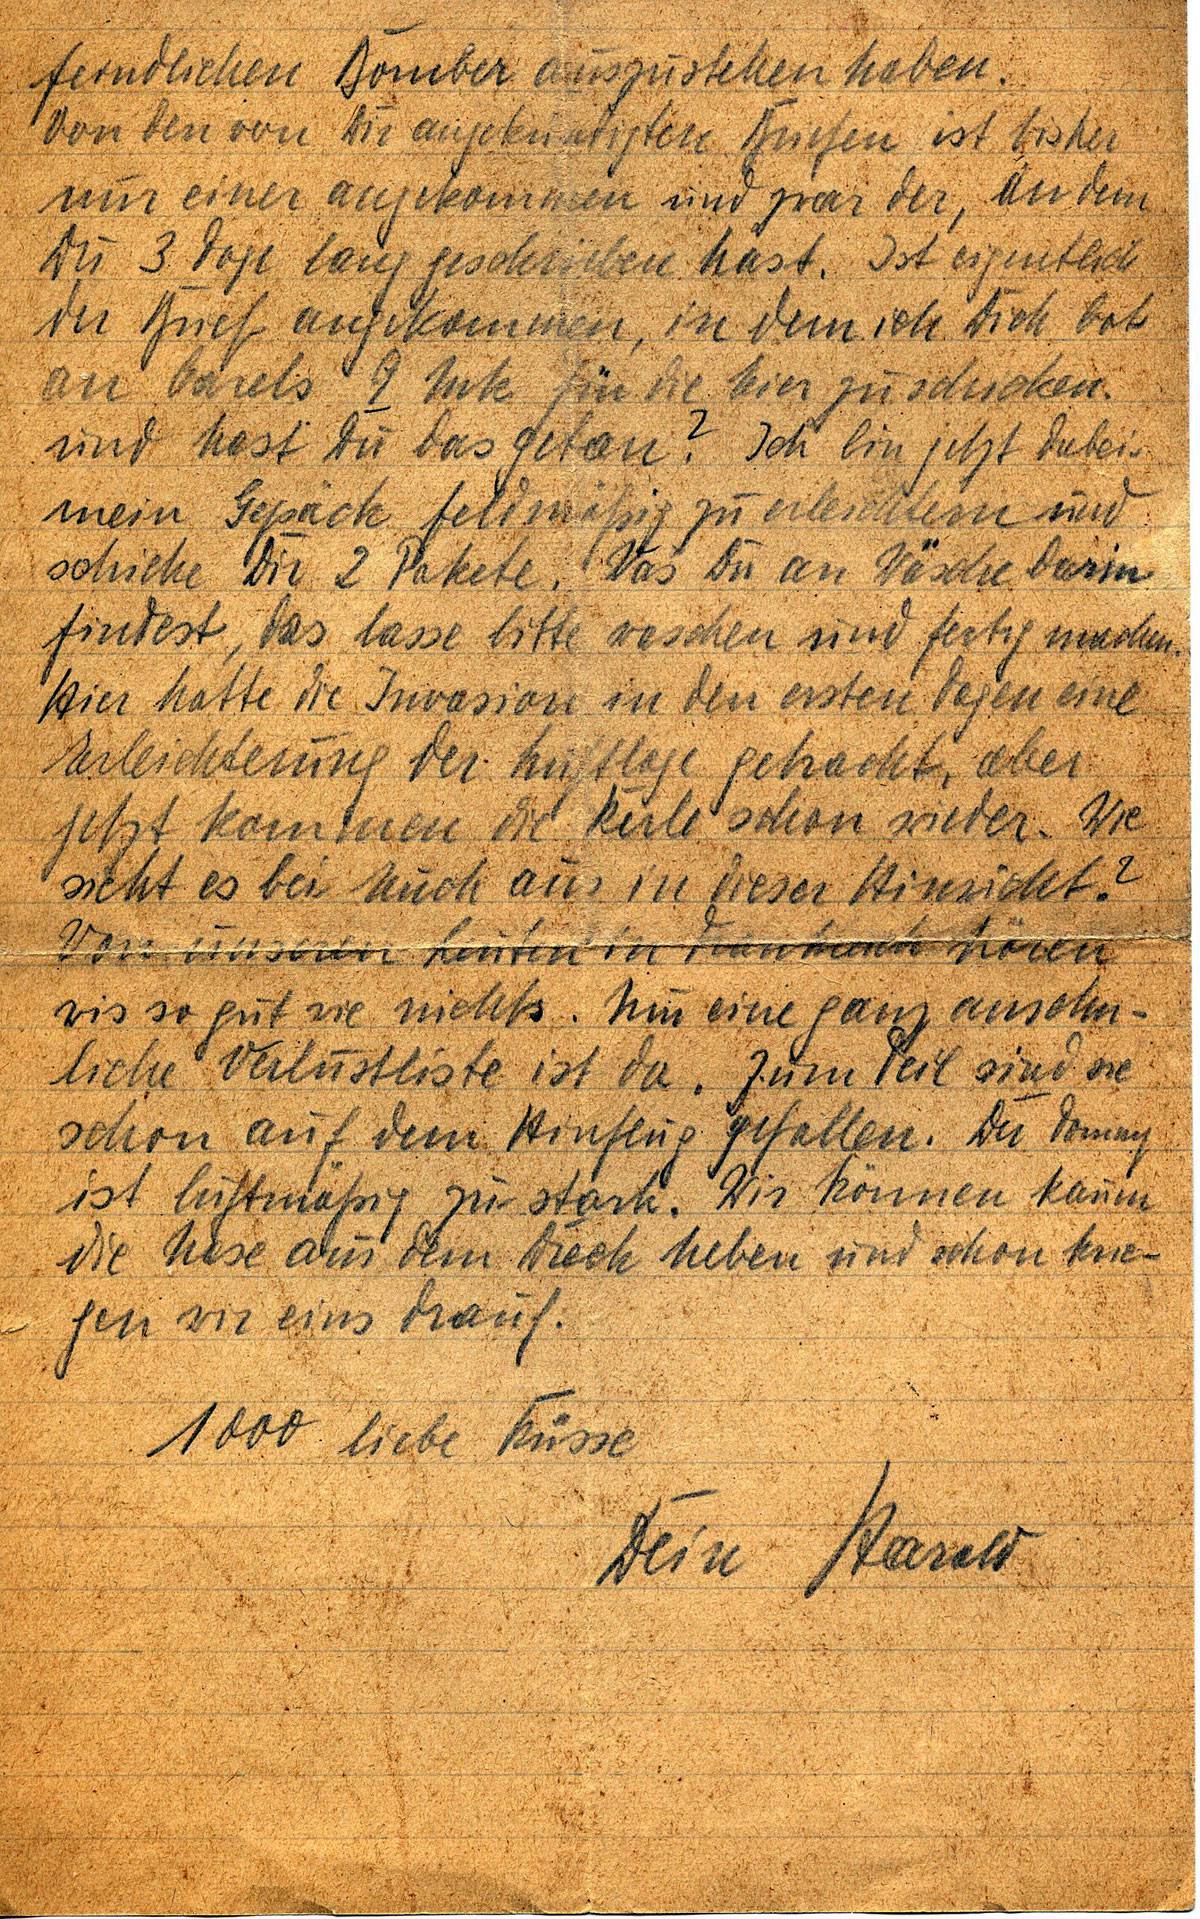 feindlichen Bomber auszustehen haben.
Von den von Dir angekündigten Briefen ist bisher
nur einer angekommen und zwar der, an dem
Du 3 Tage lang geschrieben hast. Ist eigentlich
der Brief angekommen, in dem ich Dich bat
an 9 Mk für die hier zu schicken.
und hast Du das getan? Ich bin jetzt dabei
mein Gepäck feldmäßig zu erleichtern und
schicke Dir 2 Pakete. Was Du an Wäsche darin
findest, das lasse bitte waschen und fertig machen.
Hier hatte die Invasion in den ersten Tagen eine
Erleichterung der Luftlage gebracht, aber
jetzt kommen die Kerle schon wieder. Wie
sieht es bei Euch aus in dieser Hinsicht?
Von unseren Leuten in Frankreich hören
wir so gut wie nichts. Nur eine ganz ansehn-
liche Verlustliste ist da. Zum Teil sind sie
schon auf dem Hinflug gefallen. Der Tommy
ist luftmäßig zu stark. Wir können kaum
die Nase aus dem Dreck heben und schon krie-
gen wir eins drauf.
1000 liebe Küsse
Dein Harald